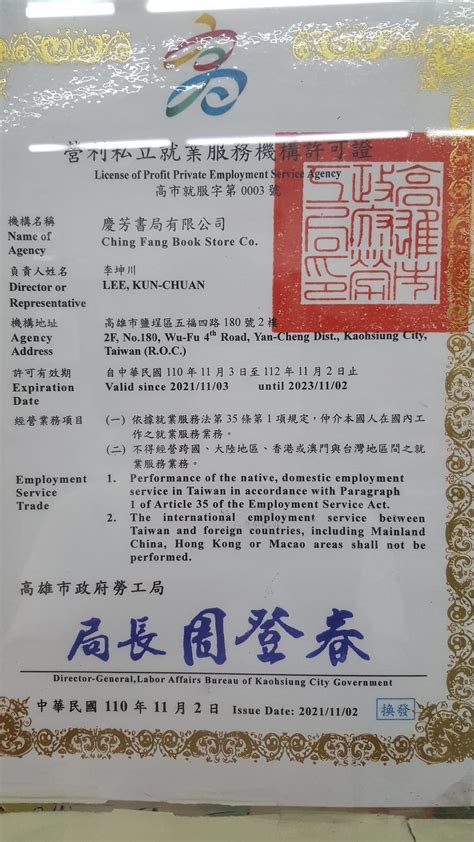 營利私立就業服務機構許可證
License of Profit Private Employment Service Agency
高市就服字第 0003 號
機構名稱 慶芳書局有限公司
Name of Agency Ching Fang Book Store Co.
負責人姓名 李坤川
Director or Representative LEE, KUN-CHUAN
機構地址 高雄市鹽埕區五福四路 180 號 2 樓
Agency Address 2F, No.180, Wu-Fu 4th Road, Yan-Cheng Dist., Kaohsiung City,
Taiwan (R.O.C.)
許可有效期 自中華民國 110 年 11 月 3 日至 112 年 11 月 2 日止
Expiration Date Valid since 2021/11/03 until 2023/11/02
經營業務項目 (一) 依據就業服務法第 35 條第 1 項規定，仲介本國人在國內工
作之就業服務業務。
(二) 不得經營跨國、大陸地區、香港或澳門與台灣地區間之就
業服務業務。
Employment Service Trade
1. Performance of the native, domestic employment
service in Taiwan in accordance with Paragraph
1 of Article 35 of the Employment Service Act.
2. The international employment service between
Taiwan and foreign countries, including Mainland
China, Hong Kong or Macao areas shall not be
performed.
高雄市政府勞工局
局長 周登春
Director-General,Labor Affairs Bureau of Kaohsiung City Government
中華民國 110 年 11 月 2 日 Issue Date: 2021/11/02 換發
高雄市
政府勞
工局印